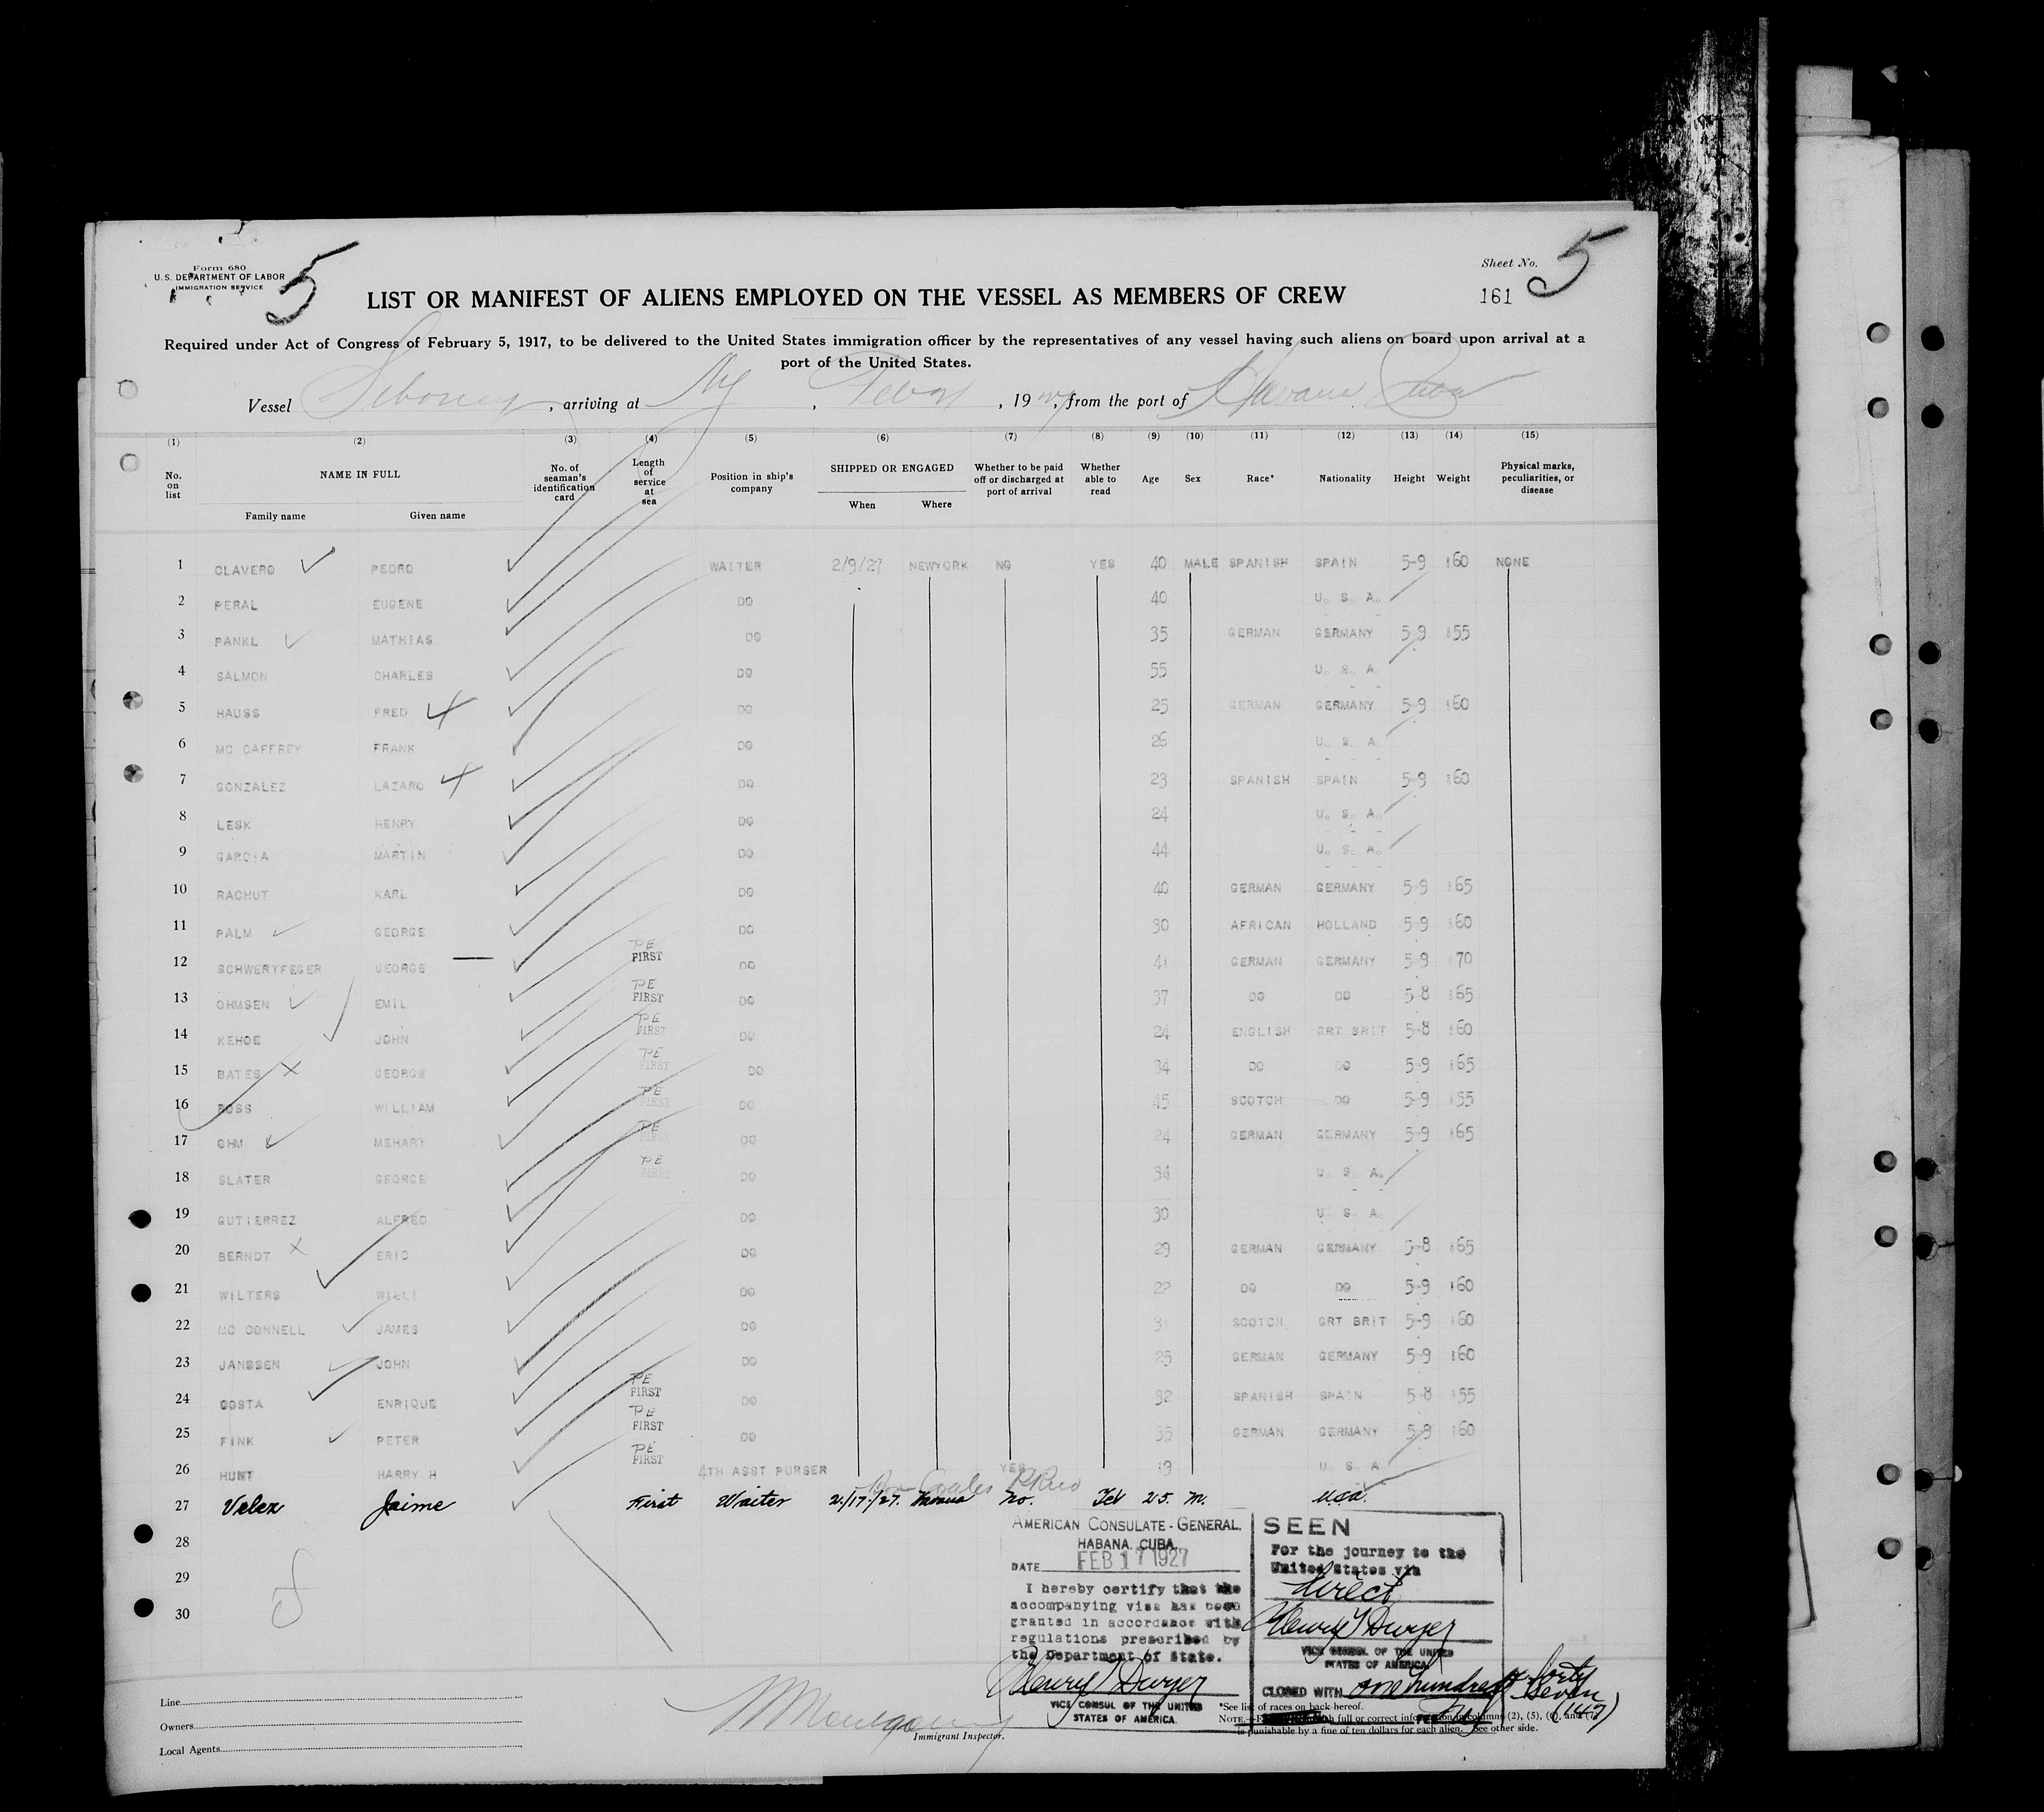 Form 680
U.S. DEPARTMENT OF LABOR
IMMIGRATION SERVICE
5
Sheet No. 5
161
LIST OR MANIFEST OF ALIENS EMPLOYED ON THE VESSEL AS MEMBERS OF CREW
Required under Act of Congress of February 5, 1917, to be delivered to the United States immigration officer by the representatives of any vessel having such aliens on board upon arrival at a
port of the United States.
Vessel Siboney, arriving at NY, 1927, from the port of Havana Cuba
(1) (2) (3) (4) (5) (6) (7) (8) (9) (10) (11) (12) (13) (14) (15)
No. on list NAME IN FULL No. of seaman's identification card Length of service at sea Position in ship's company SHIPPED OR ENGAGED Whether to be paid off or discharged at port of arrival Whether able to read Age Sex Race* Nationality Height Weight Physical marks, peculiarities, or disease
Family name Given name When Where
1 CLAVERO PEDRO WAITER 2/9/27 NEWYORK NO YES 40 MALE SPANISH SPAIN 5-9 160 NONE
2 PERAL EUGENE DO 40 U. S. A.
3 PANKL MATHIAS DO 35 GERMAN GERMANY 5-9 155
4 SALMON CHARLES DO 55 U. S. A.
5 HAUSS FRED DO 25 GERMAN GERMANY 5-9 160
6 MC CAFFREY FRANK DO 26 U. S. A.
7 GONZALEZ LAZARO DO 23 SPANISH SPAIN 5-9 160
8 LESK HENRY DO 24 U. S. A.
9 GARCIA MARTIN DO 44 U. S. A.
10 RACHUT KARL DO 40 GERMAN GERMANY 5-9 165
11 PALM GEORGE DO 30 AFRICAN HOLLAND 5-9 160
12 SCHWERTFEGER GEORGE PE FIRST DO 41 GERMAN GERMANY 5-9 170
13 OHMSEN EMIL PE FIRST DO 37 DO DO 5-8 165
14 KEHOE JOHN PE FIRST DO 24 ENGLISH GRT BRIT 5-8 160
15 BATES GEORGE PE FIRST DO 34 DO DO 5-9 165
16 ROSS WILLIAM PE FIRST DO 45 SCOTCH DO 5-9 155
17 OHM MEHART PE FIRST DO 24 GERMAN GERMANY 5-9 165
18 SLATER GEORGE PE FIRST DO 34 U. S. A.
19 GUTIERREZ ALFRED DO 30 U. S. A.
20 BERNDT ERIC DO 29 GERMAN GERMANY 5-8 165
21 WILTERS WILLI DO 22 DO DO 5-9 160
22 MC CONNELL JAMES DO SCOTCH GRT BRIT 5-9 160
23 JANSSEN JOHN DO 25 GERMAN GERMANY 5-9 160
24 COSTA ENRIQUE PE FIRST DO 32 SPANISH SPAIN 5-8 155
25 FINK PETER PE FIRST DO 35 GERMAN GERMANY 5-9 160
26 HUNT HARRY H PE FIRST 4TH ASST PURSER YES 19 U. S. A
27 Velez Jaime First Waiter 2/17/27. Havana No. 25. M. USA.
28
29
30
AMERICAN CONSULATE-GENERAL.
HABANA. CUBA.
DATE FEB 17 1927
I hereby certify that the
accompanying visa has been
granted in accordance with
regulations prescribed by
the Department of State.
Henry T Dwyer
VICE CONSUL OF THE UNITED
STATES OF AMERICA.
SEEN
For the journey to the
United States via
direct
Henry T Dwyer
VICE CONSUL OF THE UNITED
STATES OF AMERICA
CLOSED WITH one hundred forty
seven
(147)
Line
Owners
Local Agents
Immigrant Inspector.
*See list of races on back hereof.
full or correct information in columns (2), (5), (6), and (7)
is punishable by a fine of ten dollars for each alien. See other side.